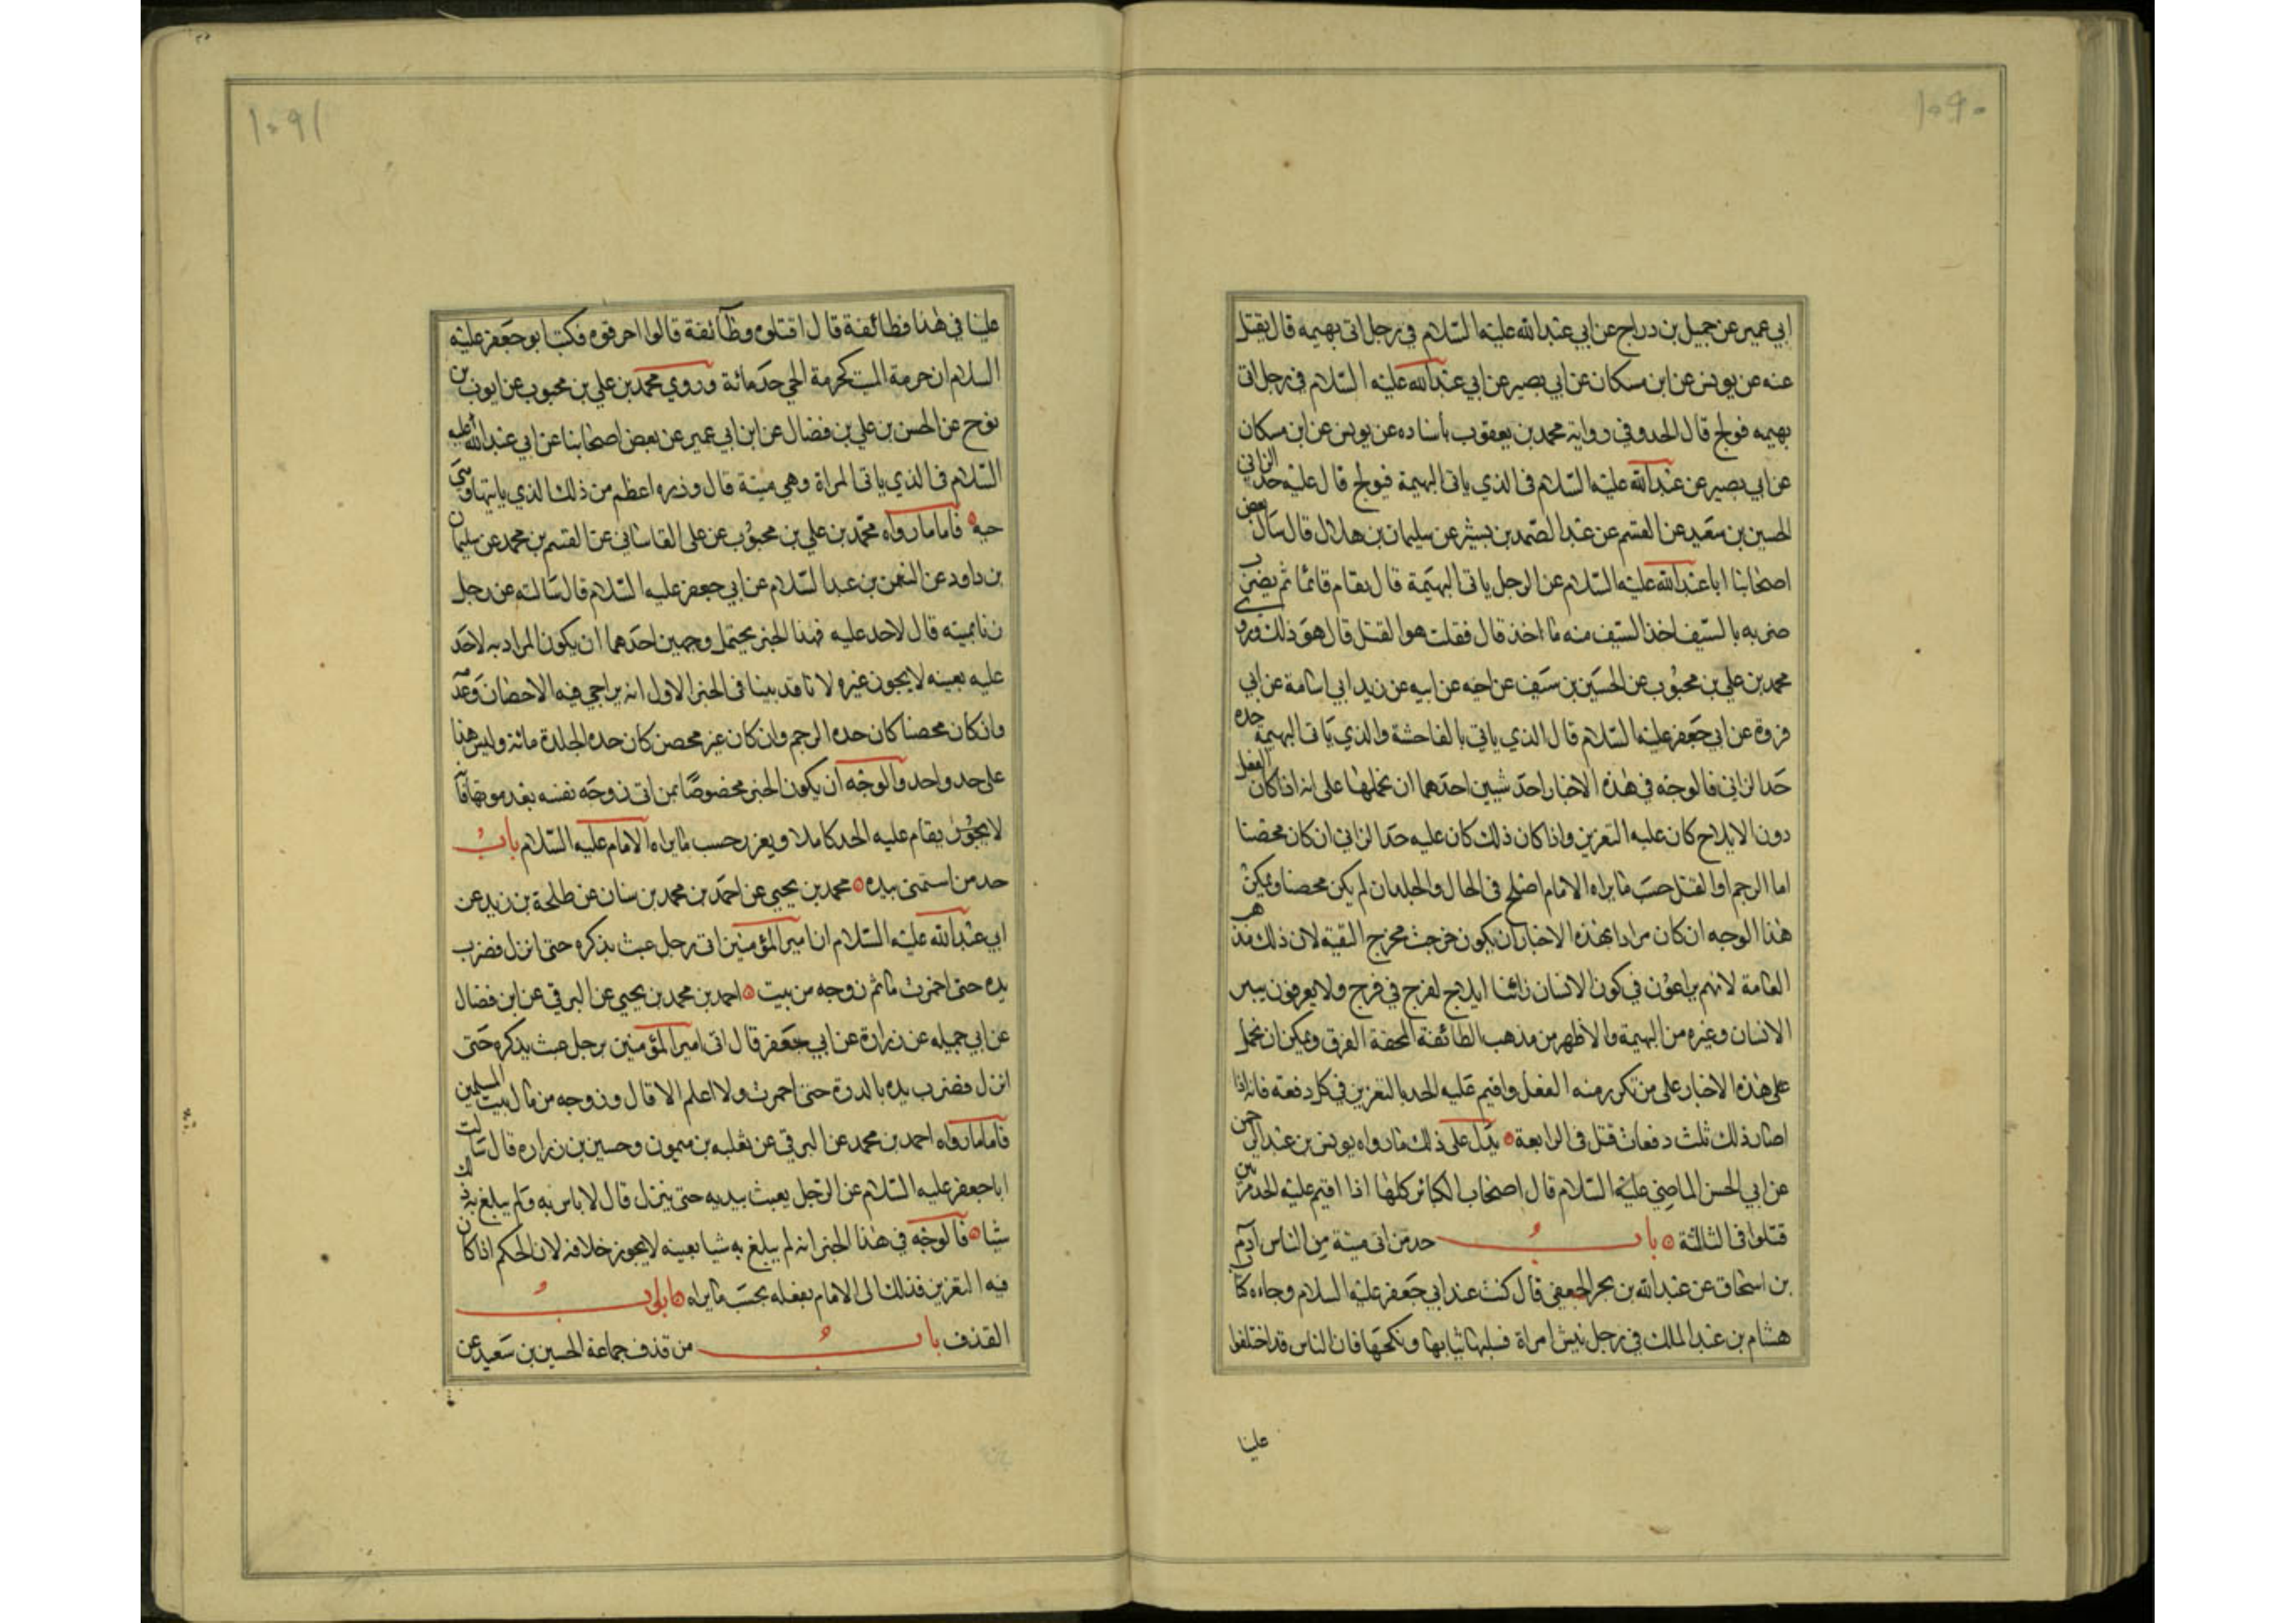 ١٠٩٠
ابي عمير عن جميل بن دراج عن ابي عبدالله عليه السلام في رجل اتى بهيمه قال يقتل
عنه عن يونس عن ابن مسكان عن ابي بصير عن ابي عبدالله عليه السلام في رجل اتى
بهيمه فولج قال الحد وفي رواية محمد بن يعقوب باسناده عن يونس عن ابن مسكان
عن ابي بصير عن عبدالله عليه السلام في الذي ياتى البهيمة فيولج قال عليه حد الزاني
الحسين بن سعيد عن القسم عن عبد الصمد بن بشير عن سليمان بن هلال قال سال بعض
اصحابنا ابا عبدالله عليه السلام عن الرجل ياتى البهيمة قال يقام قائما ثم يضرب
ضربه بالسيف اخذ السيف منه ما اخذ قال فقلت هو القتل قال هو ذلك وروى
محمد بن علي بن محبوب عن الحسين بن سيف عن اخيه عن ابيه عن زيد ابي اسامة عن ابي
فروة عن ابي جعفر عليه السلام قال الذي ياتي بالفاحشة والذي ياتى البهيمة حده
حد الزاني فالوجه في هذه الاخبار احد شيين احدهما ان نحملها على انه اذا كان الفعل
دون الايلاج كان عليه التعزير واذا كان ذلك كان عليه حد الزاني ان كان محصنا
اما الرجم او القتل حسب ما يراه الامام اصلح في الحال والجلد ان لم يكن محصنا ويمكن
هذا الوجه ان كان مرادا بهذه الاخبار ان يكون خرجت مخرج التقية لان ذلك مذهب
العامة لانهم يراعون في كون الانسان زانيا ايلاج لفرج في فرج ولا يعرفون بين
الانسان وغيره من البهيمة والاظهر من مذهب الطائفة المحقة الفرق ويمكن ان نحمل
على هذه الاخبار على من تكرر منه الفعل واقيم عليه الحد بالتعزير في كل دفعة فانه اذا
صار ذلك ثلث دفعات قتل في الرابعة يدل على ذلك ما رواه يونس بن عبد الرحمن
عن ابي الحسن الماضي عليه السلام قال اصحاب الكبائر كلها اذا اقيم عليه الحد مرتين
قتلوا في الثالثة باب حد من اتى ميتة من الناس آدم
بن اسحاق عن عبدالله بن بحر الجعفي قال كنت عند ابي جعفر عليه السلام وجاءه كتاب
هشام بن عبد الملك في رجل نبش امراة فسلبها ثيابها ونكحها فان الناس قد اختلفوا
علينا
١٠٩١
علينا في هذا فطائفة قال اقتلوه وطائفة قالوا احرقوه فكتب ابو جعفر عليه
السلام ان حرمة الميت كحرمة الحي حد مائة وروي محمد بن علي بن محبوب عن ايوب بن
نوح عن الحسن بن علي بن فضال عن ابن ابي عمير عن بعض اصحابنا عن ابي عبدالله عليه
السلام في الذي ياتى المراة وهي ميتة قال وزره اعظم من ذلك الذي ياتيها وهي
حيه فاما ما رواه محمد بن علي بن محبوب عن على القاساني عن القسم بن محمد عن سليمان
بن داود عن النعمن بن عبد السلام عن ابي جعفر عليه السلام قال سالته عن رجل
زنا بميته قال لا حد عليه فهذا الخبر يحتمل وجهين احدهما ان يكون المراد به لا حد
عليه بعينه لا يجوز غيره لانا قد بينا في الخبر الاول انه يراعي فيه الاحصان وعدمه
وان كان محصنا كان حده الرجم وان كان غير محصن كان حده الجلدة مائة وليس هذا
على حد واحد والوجه ان يكون الخبر مخصوصا بمن اتى زوجه نفسه بعد موتها فانه
لا يجوز يقام عليه الحد كاملا ويعزر حسب ما يراه الامام عليه السلام باب
حد من استمنى بيده محمد بن يحيي عن احمد بن محمد بن سنان عن طلحة بن زيد عن
ابي عبدالله عليه السلام ان امير المؤمنين اتى رجل عبث بذكره حتى انزل فضرب
يده حتى احمرت ما ثم زوجه من بيت احمد بن محمد بن يحيي عن البرقي عن ابن فضال
عن ابي جميله عن زرارة عن ابي جعفر قال اتى امير المؤمنين برجل عبث بذكره حتى
انزل فضرب يده بالدرة حتى احمرت ولا اعلم الا قال وزوجه من مال بيت المسلمين
فاما ما رواه احمد بن محمد عن البرقي عن ثعلبه بن ميمون وحسين بن زراره قال سالت
ابا جعفر عليه السلام عن الرجل يعبث بيديه حتى ينزل قال لا باس به ولم يبلغ به ذلك
شيا فالوجه في هذا الخبر انه لم يبلغ به شيا بعينه لا يجوز خلافه لان الحكم اذا كان
فيه التعزير فذلك الى الامام يفعله بحسب ما يراه
القذف باب من قذف جماعة الحسين بن سعيد عن